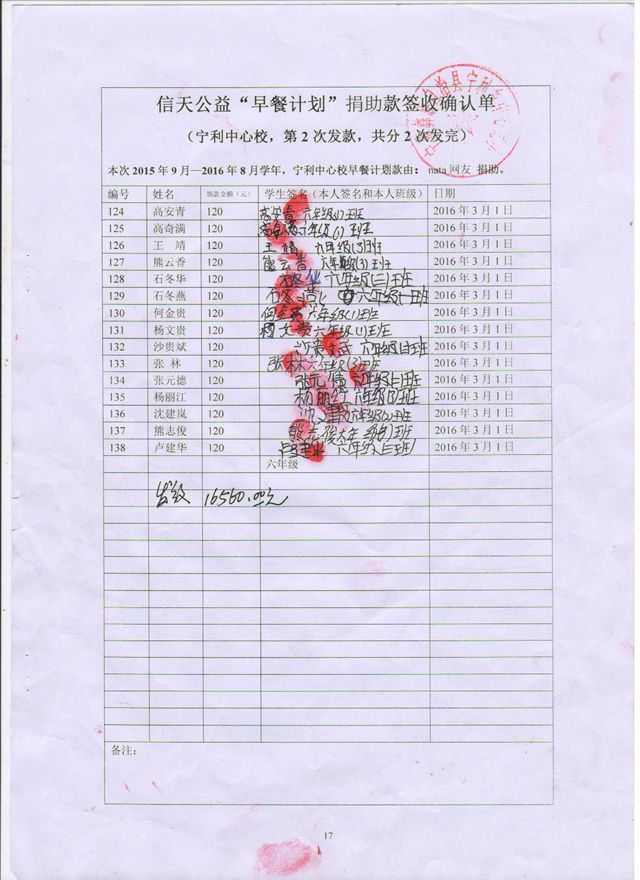 信天公益“早餐计划”捐助款签收确认单
（宁利中心校，第 2 次发款，共分 2 次发完）
本次 2015 年 9 月—2016 年 8 月学年，宁利中心校早餐计划款由： nata 网友 捐助。
编号 姓名 领款金额（元） 学生签名（本人签名和本人班级） 日期
124 高安青 120 高安青 六年级(1)班 2016 年 3 月 1 日
125 高奇满 120 年级(1)班 2016 年 3 月 1 日
126 王 靖 120 王靖 六年级(3)班 2016 年 3 月 1 日
127 熊云香 120 熊云香 六年级(3)班 2016 年 3 月 1 日
128 石冬华 120 六年级(三)班 2016 年 3 月 1 日
129 石冬燕 120 石冬燕 六年级 班 2016 年 3 月 1 日
130 何金贵 120 何金贵 六年级(1)班 2016 年 3 月 1 日
131 杨文贵 120 杨文贵 六年级(1)班 2016 年 3 月 1 日
132 沙贵斌 120 沙贵斌 六年级 班 2016 年 3 月 1 日
133 张 林 120 张林 六年级 班 2016 年 3 月 1 日
134 张元德 120 张元德 六年级 班 2016 年 3 月 1 日
135 杨丽江 120 杨丽江 六年级 班 2016 年 3 月 1 日
136 沈建岚 120 沈建 六年级 班 2016 年 3 月 1 日
137 熊志俊 120 熊志俊 六年级 班 2016 年 3 月 1 日
138 卢建华 120 卢建华 六年级 班 2016 年 3 月 1 日
六年级
16560.00元
备注：
17